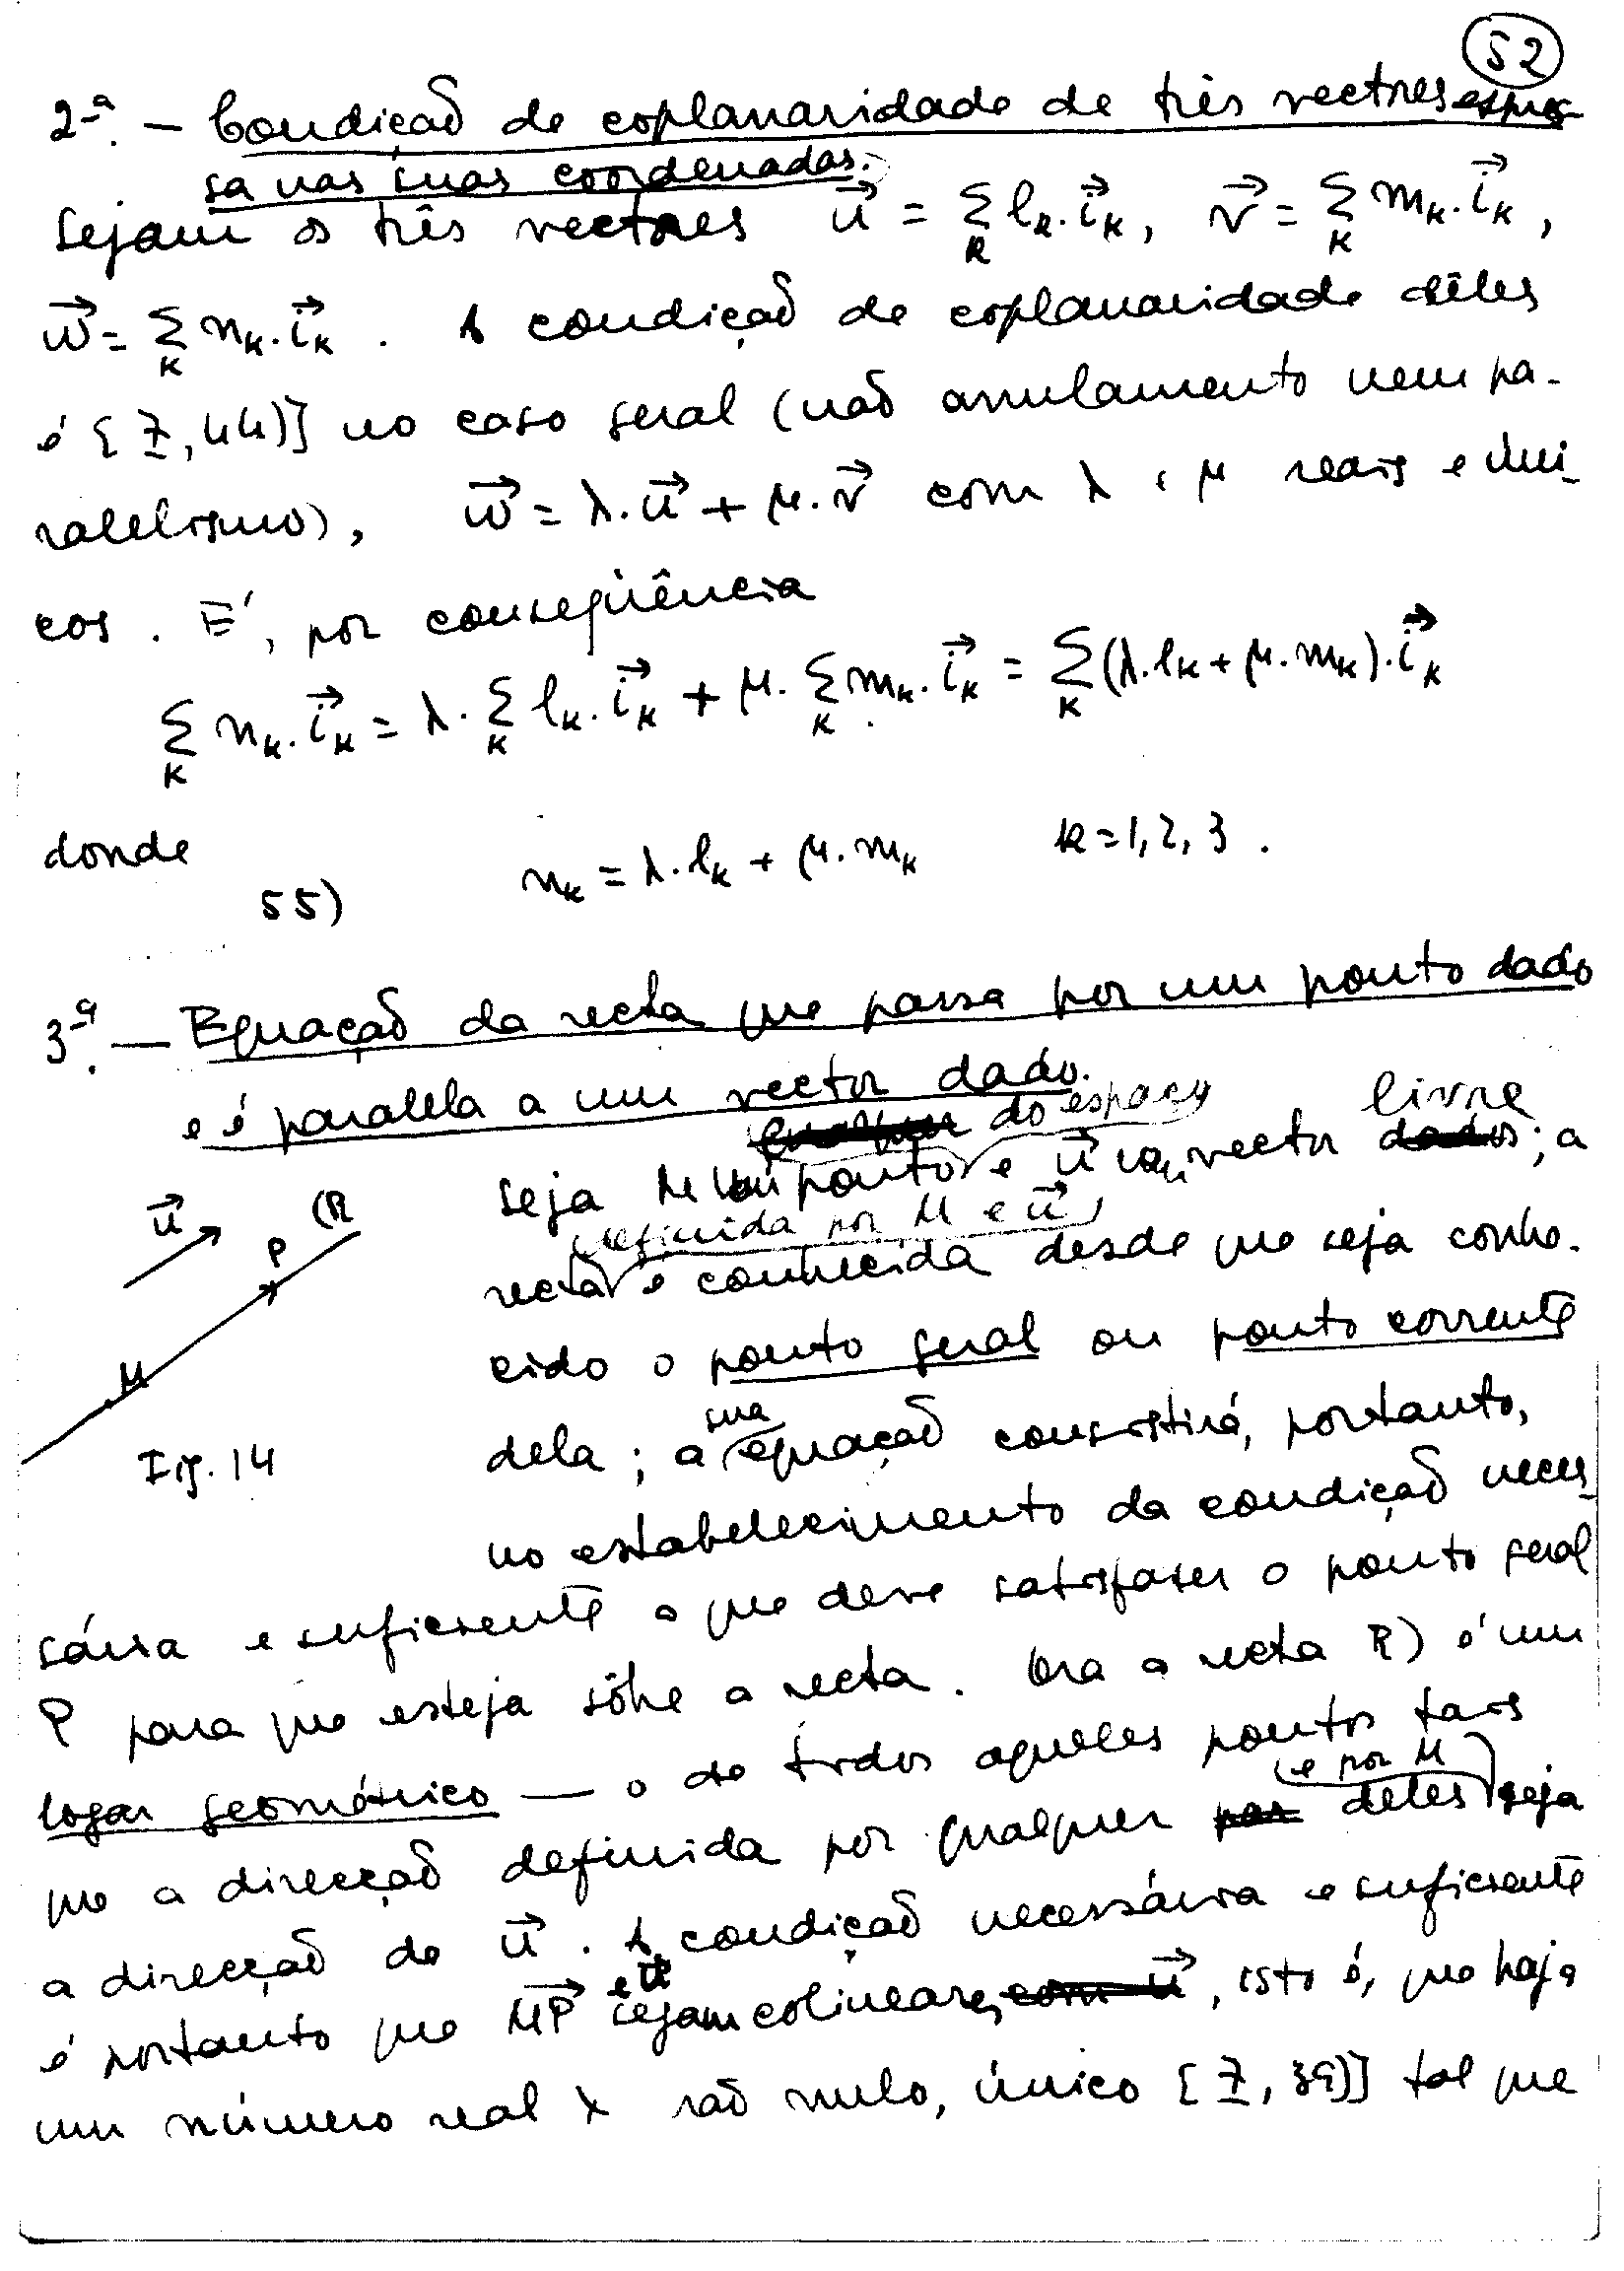 52
2.ª — Condição de coplanaridade de três vectores expres
sa nas suas coordenadas.
Sejam os três vectores u⃗ = Σ_k l_k . i⃗_k, v⃗ = Σ_k m_k . i⃗_k,
w⃗ = Σ_k n_k . i⃗_k . A condição de coplanaridade dêles
é [7, 44)] no caso geral (não anulamento nem pa-
ralelismo), w⃗ = λ.u⃗ + μ.v⃗ com λ e μ reais e úni-
cos . É, por conseqüência
Σ_k n_k . i⃗_k = λ . Σ_k l_k . i⃗_k + μ . Σ_k m_k . i⃗_k = Σ_k (λ.l_k + μ.m_k) . i⃗_k
donde
55) n_k = λ.l_k + μ.m_k k = 1, 2, 3 .
3.ª — Equação da recta que passa por um ponto dado
e é paralela a um vector dado.
seja M um ponto do espaço e u⃗ um vector livre; a
recta definida por M e u⃗, é conhecida desde que seja conhe-
cido o ponto geral ou ponto corrente
dela ; a sua equação consistirá, portanto,
no estabelecimento da condição neces
sária e suficiente a que deve satisfazer o ponto geral
P para que esteja sôbre a recta. Ora a recta R) é um
logar geométrico — o de todos aqueles pontos tais
que a direcção definida por qualquer deles e por M seja
a direcção de u⃗ . A condição necessária e suficiente
é portanto que MP⃗ e u⃗ sejam colineares, isto é, que haja
um número real λ não nulo, único [7, 39)] tal que
u⃗
P
(R
M
Fig. 14